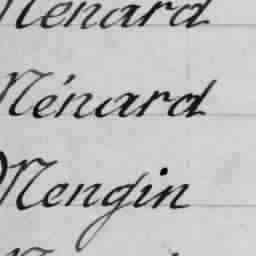 Ménard
Ménard
Mengin